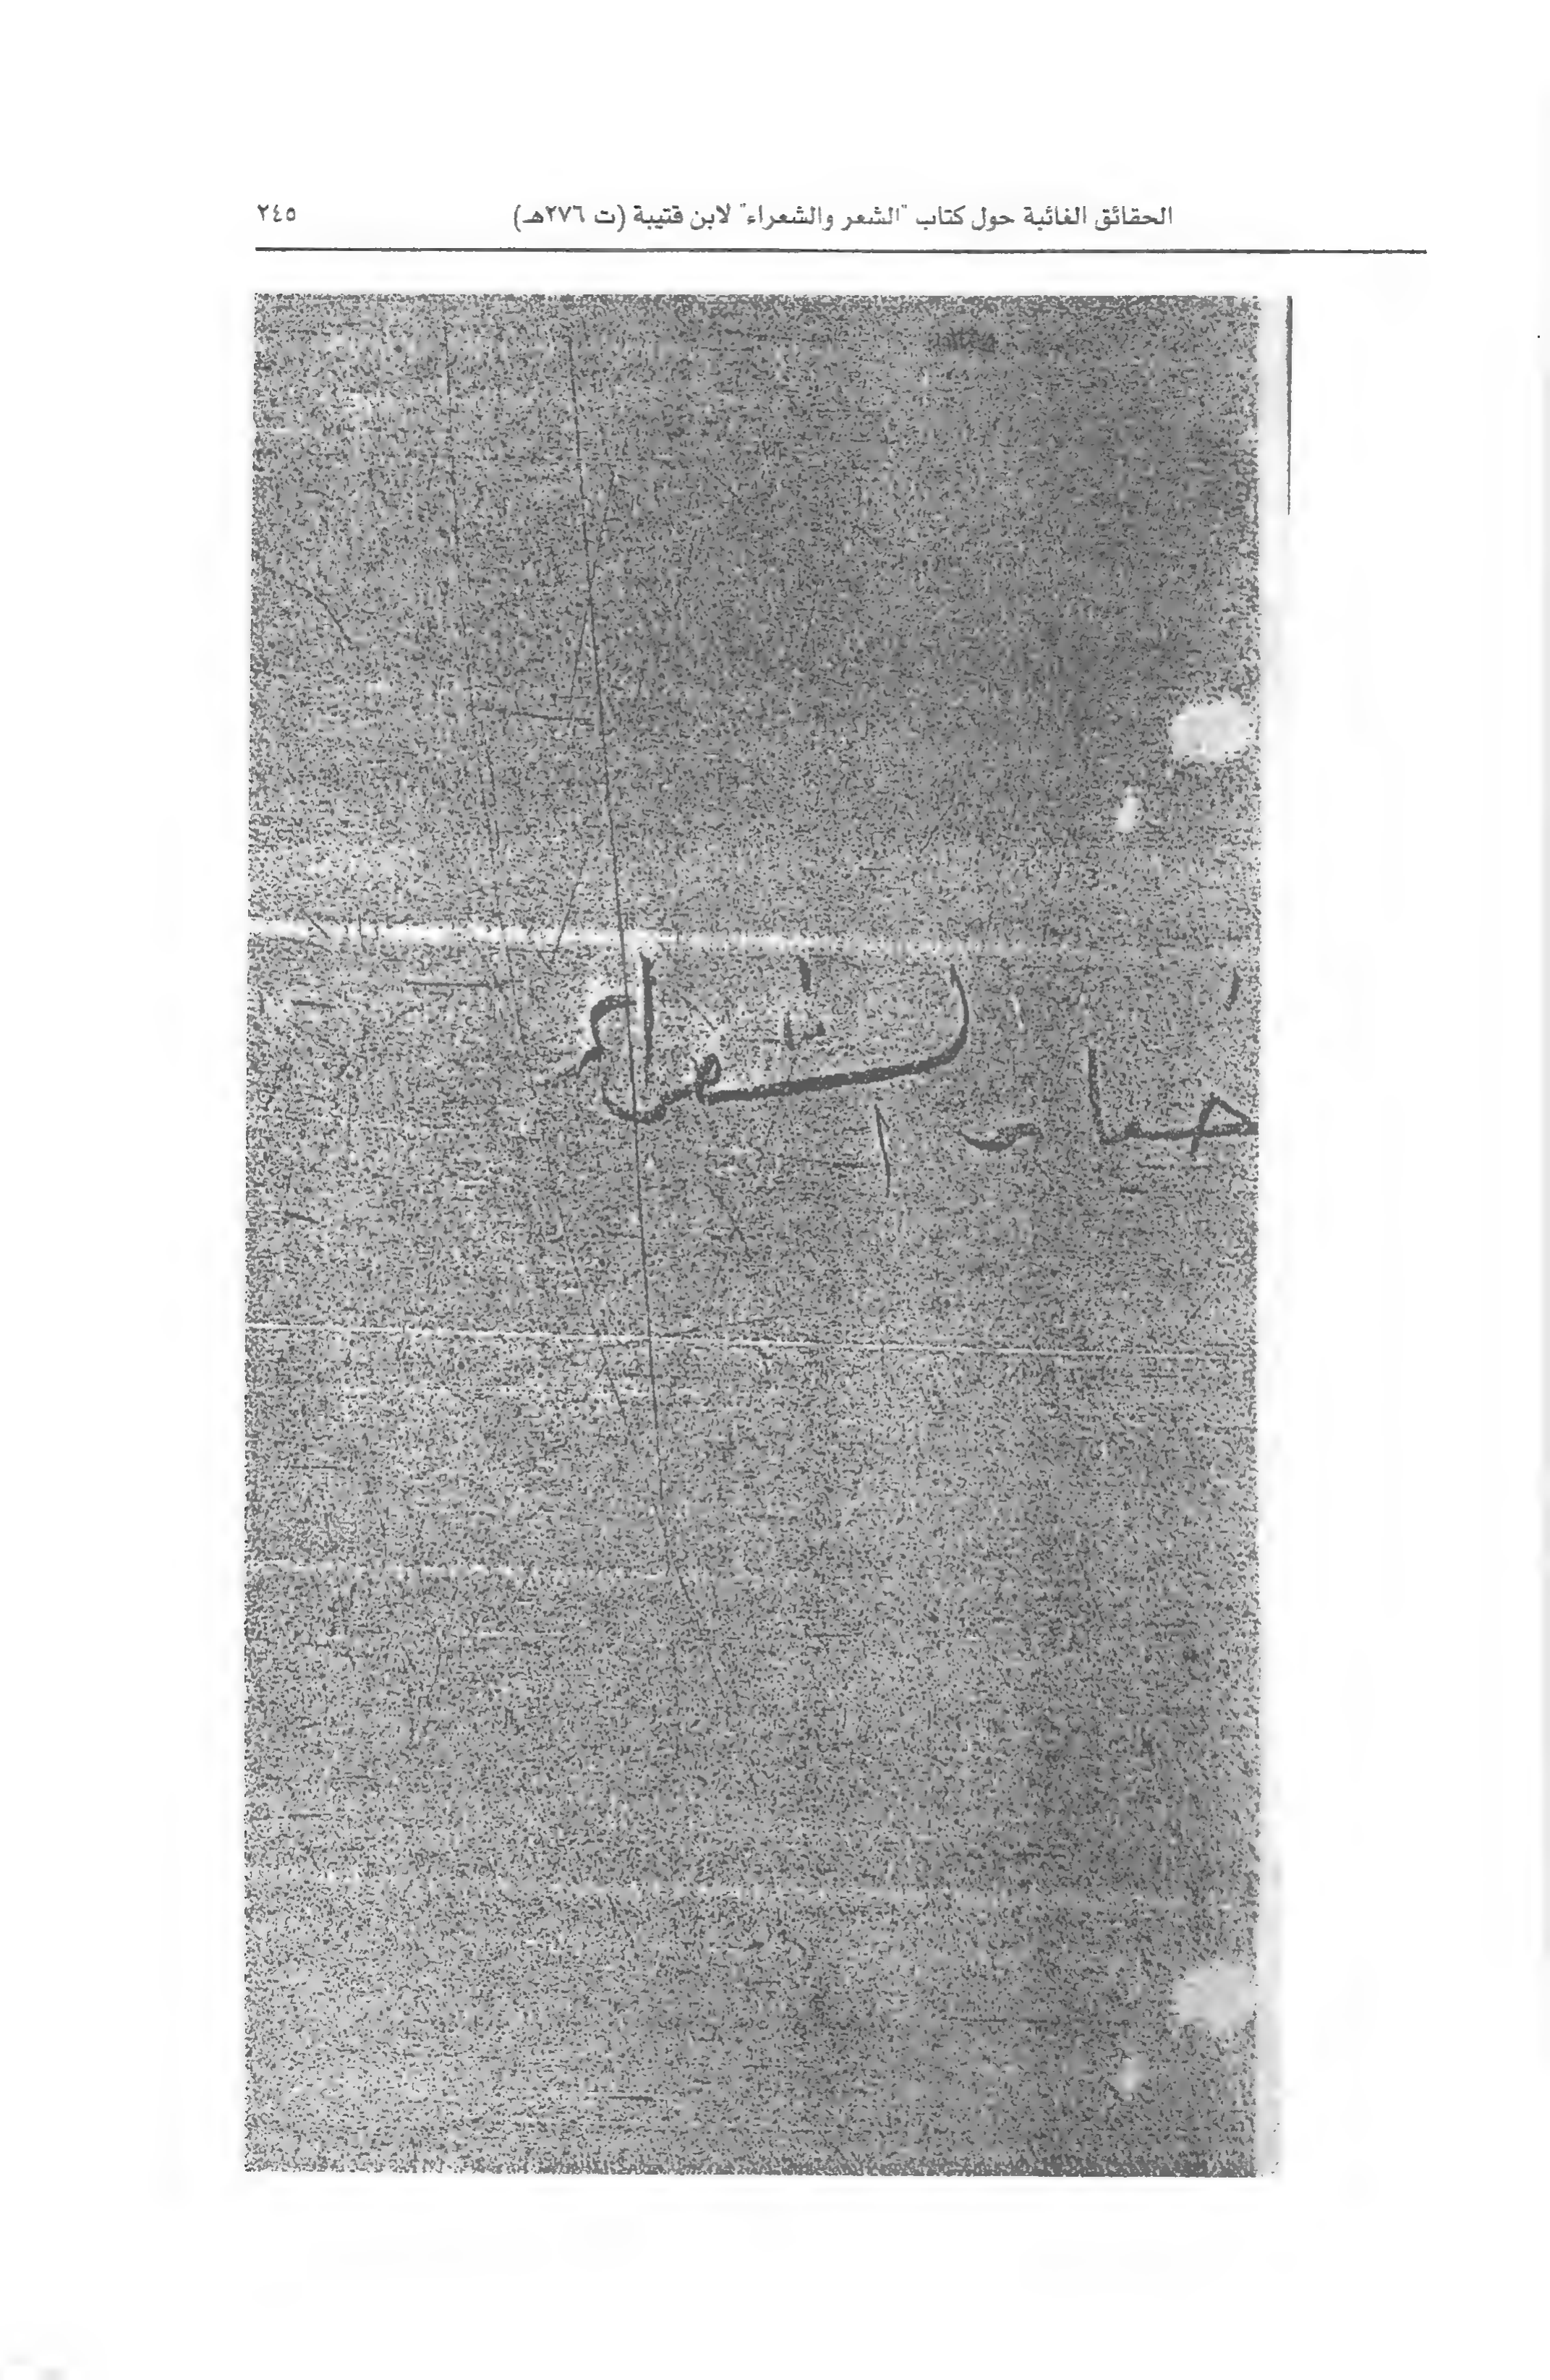 الحقائق الغائبة حول كتاب "الشعر والشعراء" لابن قتيبة (ت ٢٧٦هـ) ٢٤٥
الشعراء